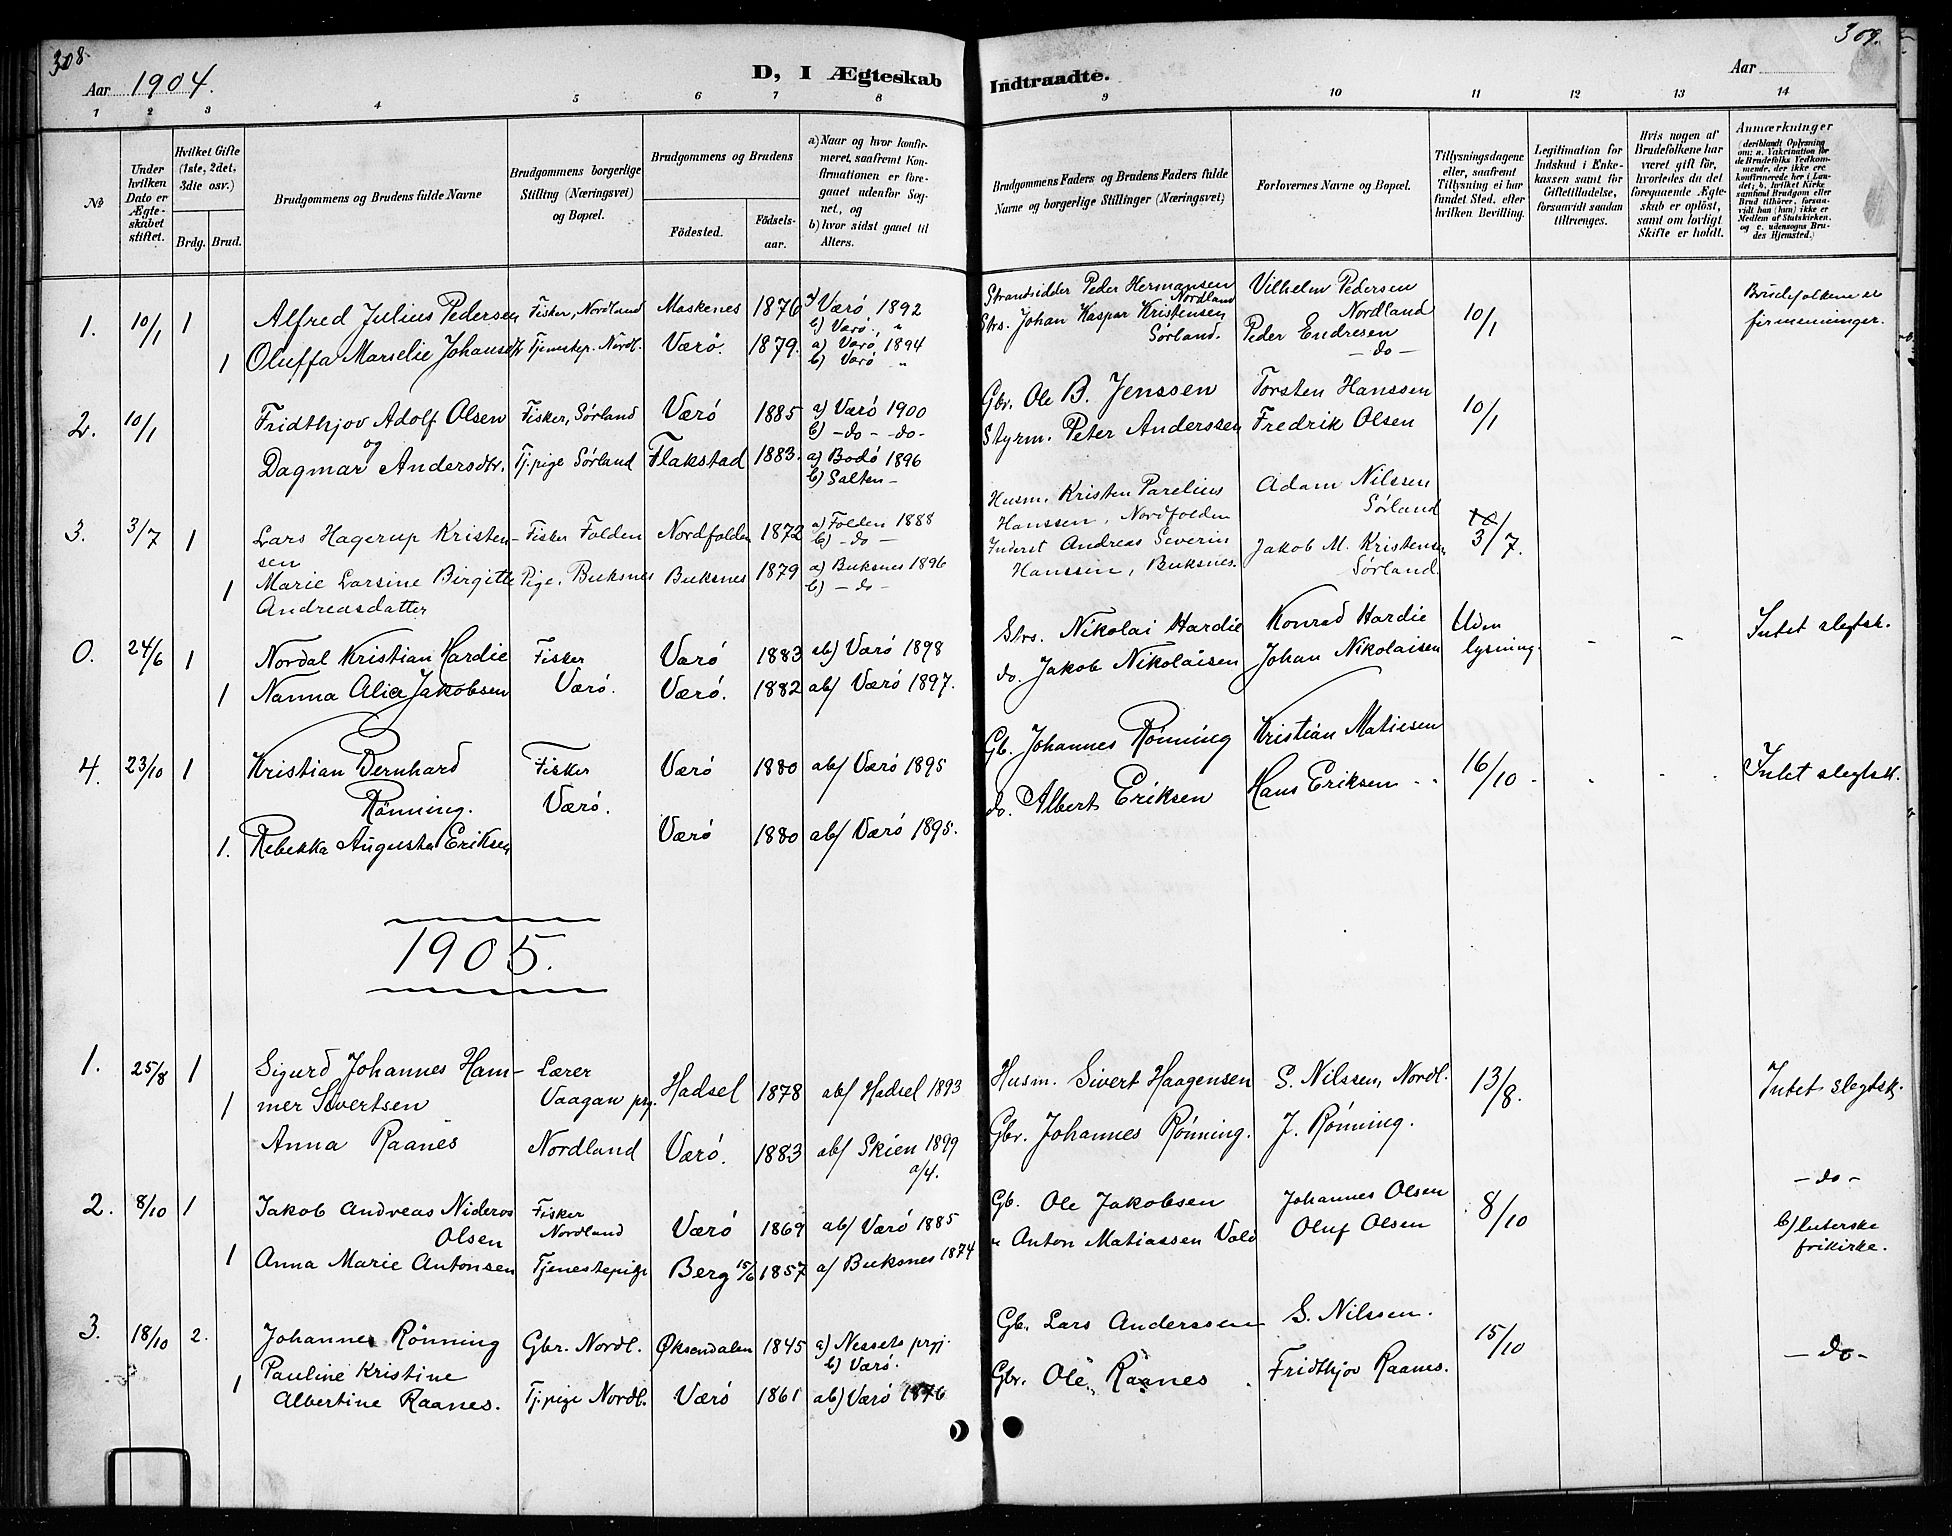 308
Aar 1904.
D, I Ægteskab
Indtraadte.
Aar
309.
1 2 3 4 5 6 7 8 9 10 11 12 13 14
№
Under hvilken Dato er Ægteskabet stiftet.
Hvilket Gifte (1ste, 2det, 3die osv.)
Brdg. Brud.
Brudgommens og Brudens fulde Navne
Brudgommens borgerlige Stilling (Næringsvei) og Bopæl.
Brudgommens og Brudens
Fødested. Fødselsaar.
a) Naar og hvor konfirmeret, saafremt Konfirmationen er foregaaet udenfor Sognet, og
b) hvor sidst gaaet til Alters.
Brudgommens Faders og Brudens Faders fulde Navne og borgerlige Stillinger (Næringsvei)
Forlovernes Navne og Bopæl.
Tillysningsdagene eller, saafremt Tillysning ei har fundet Sted, efter hvilken Bevilling.
Legitimation for Indskud i Enkekassen samt for Giftetilladelse, forsaavidt saadan tiltrænges.
Hvis nogen af Brudefolkene har været gift før, hvorledes da det foregaaende Ægteskab er opløst, samt om lovligt Skifte er holdt.
Anmærkninger
(deriblandt Oplysning om: a. Vakcination for de Brudefolks Vedkommende, der ikke ere konfirmerede her i Landet; b. hvilket Kirkesamfund Brudgom eller Brud tilhører, forsaavidt han (hun) ikke er Medlem af Statskirken, og c. udensogns Brudes Hjemsted.)
1. 10/1 1 Alfred Julius Pedersen Fisker, Nordland Moskenes 1876 a) Værø 1892 b) Værø " Strandsidder Peder Hermansen Nordland Vilhelm Pedersen Nordland 10/1 Brudefolkene er firmenninger.
1 Oluffa Marselie Johansdtr Tjenestep. Nordl. Værø. 1879. a) Værø 1894 b) Værø " Strs. Johan Kaspar Kristensen Sørland. Peder Endresen -do-
2. 10/1 Fridthjov Adolf Olsen Fisker, Sørland Værø 1885 a) Værø 1900 b) -do- -do- Gbr. Ole B. Jenssen Torsten Hanssen 10/1
og
Dagmar Andersdtr. Tj.pige Sørland Flakstad 1883. a) Bodø 1896 b) Salten - Styrm. Peter Anderssen Fredrik Olsen
3. 3/7 1 Lars Hagerup Kristensen Fisker Folden Nordfolden 1872 a) Folden 1888 b) -do- Husm. Kristen Parelius Hanssen, Nordfolden Adam Nilssen Sørland 3/7.
1 Marie Larsine Birgitte Andreasdatter Pige, Buksnes Buksnes 1879 a) Buksnes 1896 b) -do- Inderst Andreas Severin Hanssen, Buksnes. Jakob M. Kristensen Sørland.
0. 24/6 1 Nordal Kristian Hardie Fisker Værø. Værø 1883 ab) Værø 1898 Strs. Nikolai Hardie Konrad Hardie Uden lysning. - - Intet slegtsk.
1 Nanna Alice Jakobsen Værø. 1882 ab/ Værø 1897. do. Jakob Nikolaisen Johan Nikolaisen
4. 23/10 1 Kristian Bernhard Rönning. Fisker Værø. Værø 1880 ab/ Værø 1895 Gb. Johannes Rönning Kristian Matiesen 16/10 Intet slegtsk.
1. Rebekka Augusta Eriksen Værø 1880 ab/ Værø 1895. do. Albert Eriksen Hans Eriksen
1905.
1. 25/8 1 Sigurd Johannes Hammer Sivertsen Lærer Vaagan prg. Hadsel 1878 ab/ Hadsel 1893 Husm. Sivert Haagensen S. Nilssen, Nordl. 13/8. Intet slegtsk.
1 Anna Raanes Nordland Værø. 1883 ab/ Skien 1899 Gbr. Johannes Rönning. J. Rönning.
2. 8/10 1 Jakob Andreas Nideros Olsen Fisker Nordland Værø 1869 ab/ Værø 1885 Gb. Ole Jakobsen Johannes Olsen 8/10 -do-
1 Anna Marie Antonsen Tjenestepige Berg 15/6 1857 a/ Buksnes 1874 " Anton Matiassen Vold Oluf Olsen b/ luterske frikirke.
3. 18/10 2. Johannes Rönning Gbr. Nordl. Øksendalen 1845 a) Nessets prgj. b) Værø. Gb. Lars Anderssen S. Nilssen. 15/10 -do-
1 Pauline Kristine Albertine Raanes. Tj.pige Nordl. Værø 1861 ab) Værø 1876 Gbr. Ole Raanes Fridthjov Raanes.